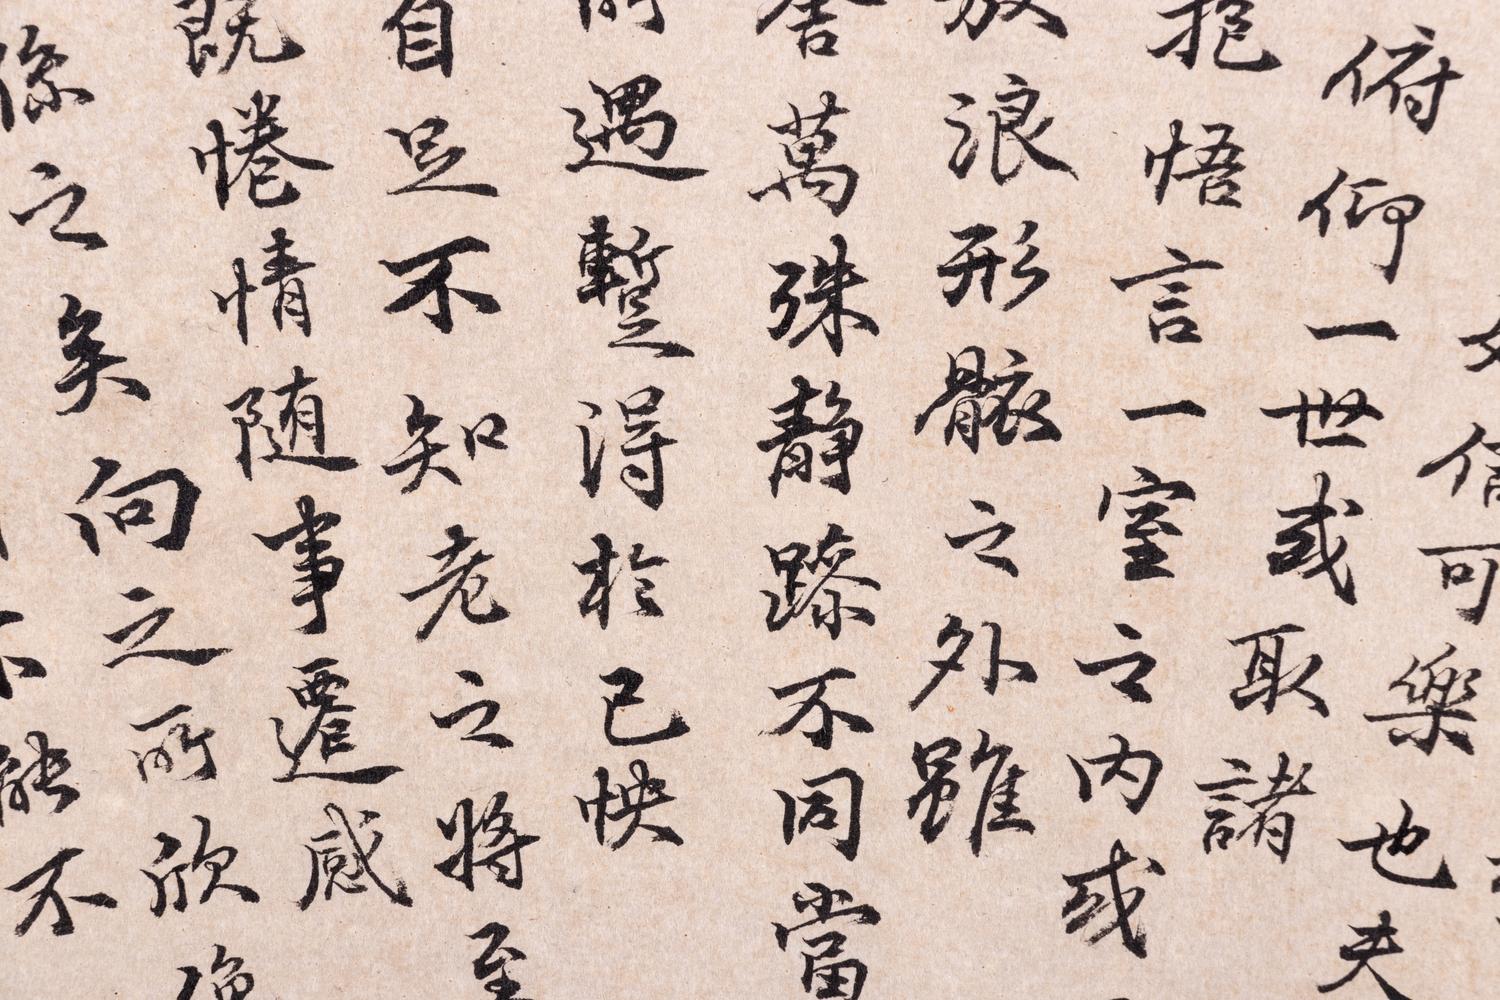 信可樂也夫
俯仰一世或取諸
抱悟言一室之内或
放浪形骸之外雖
舍萬殊静躁不同當
所遇蹔得於己怏
自足不知老之將至
既惓情随事遷感
係之矣向之所欣俛
不能不